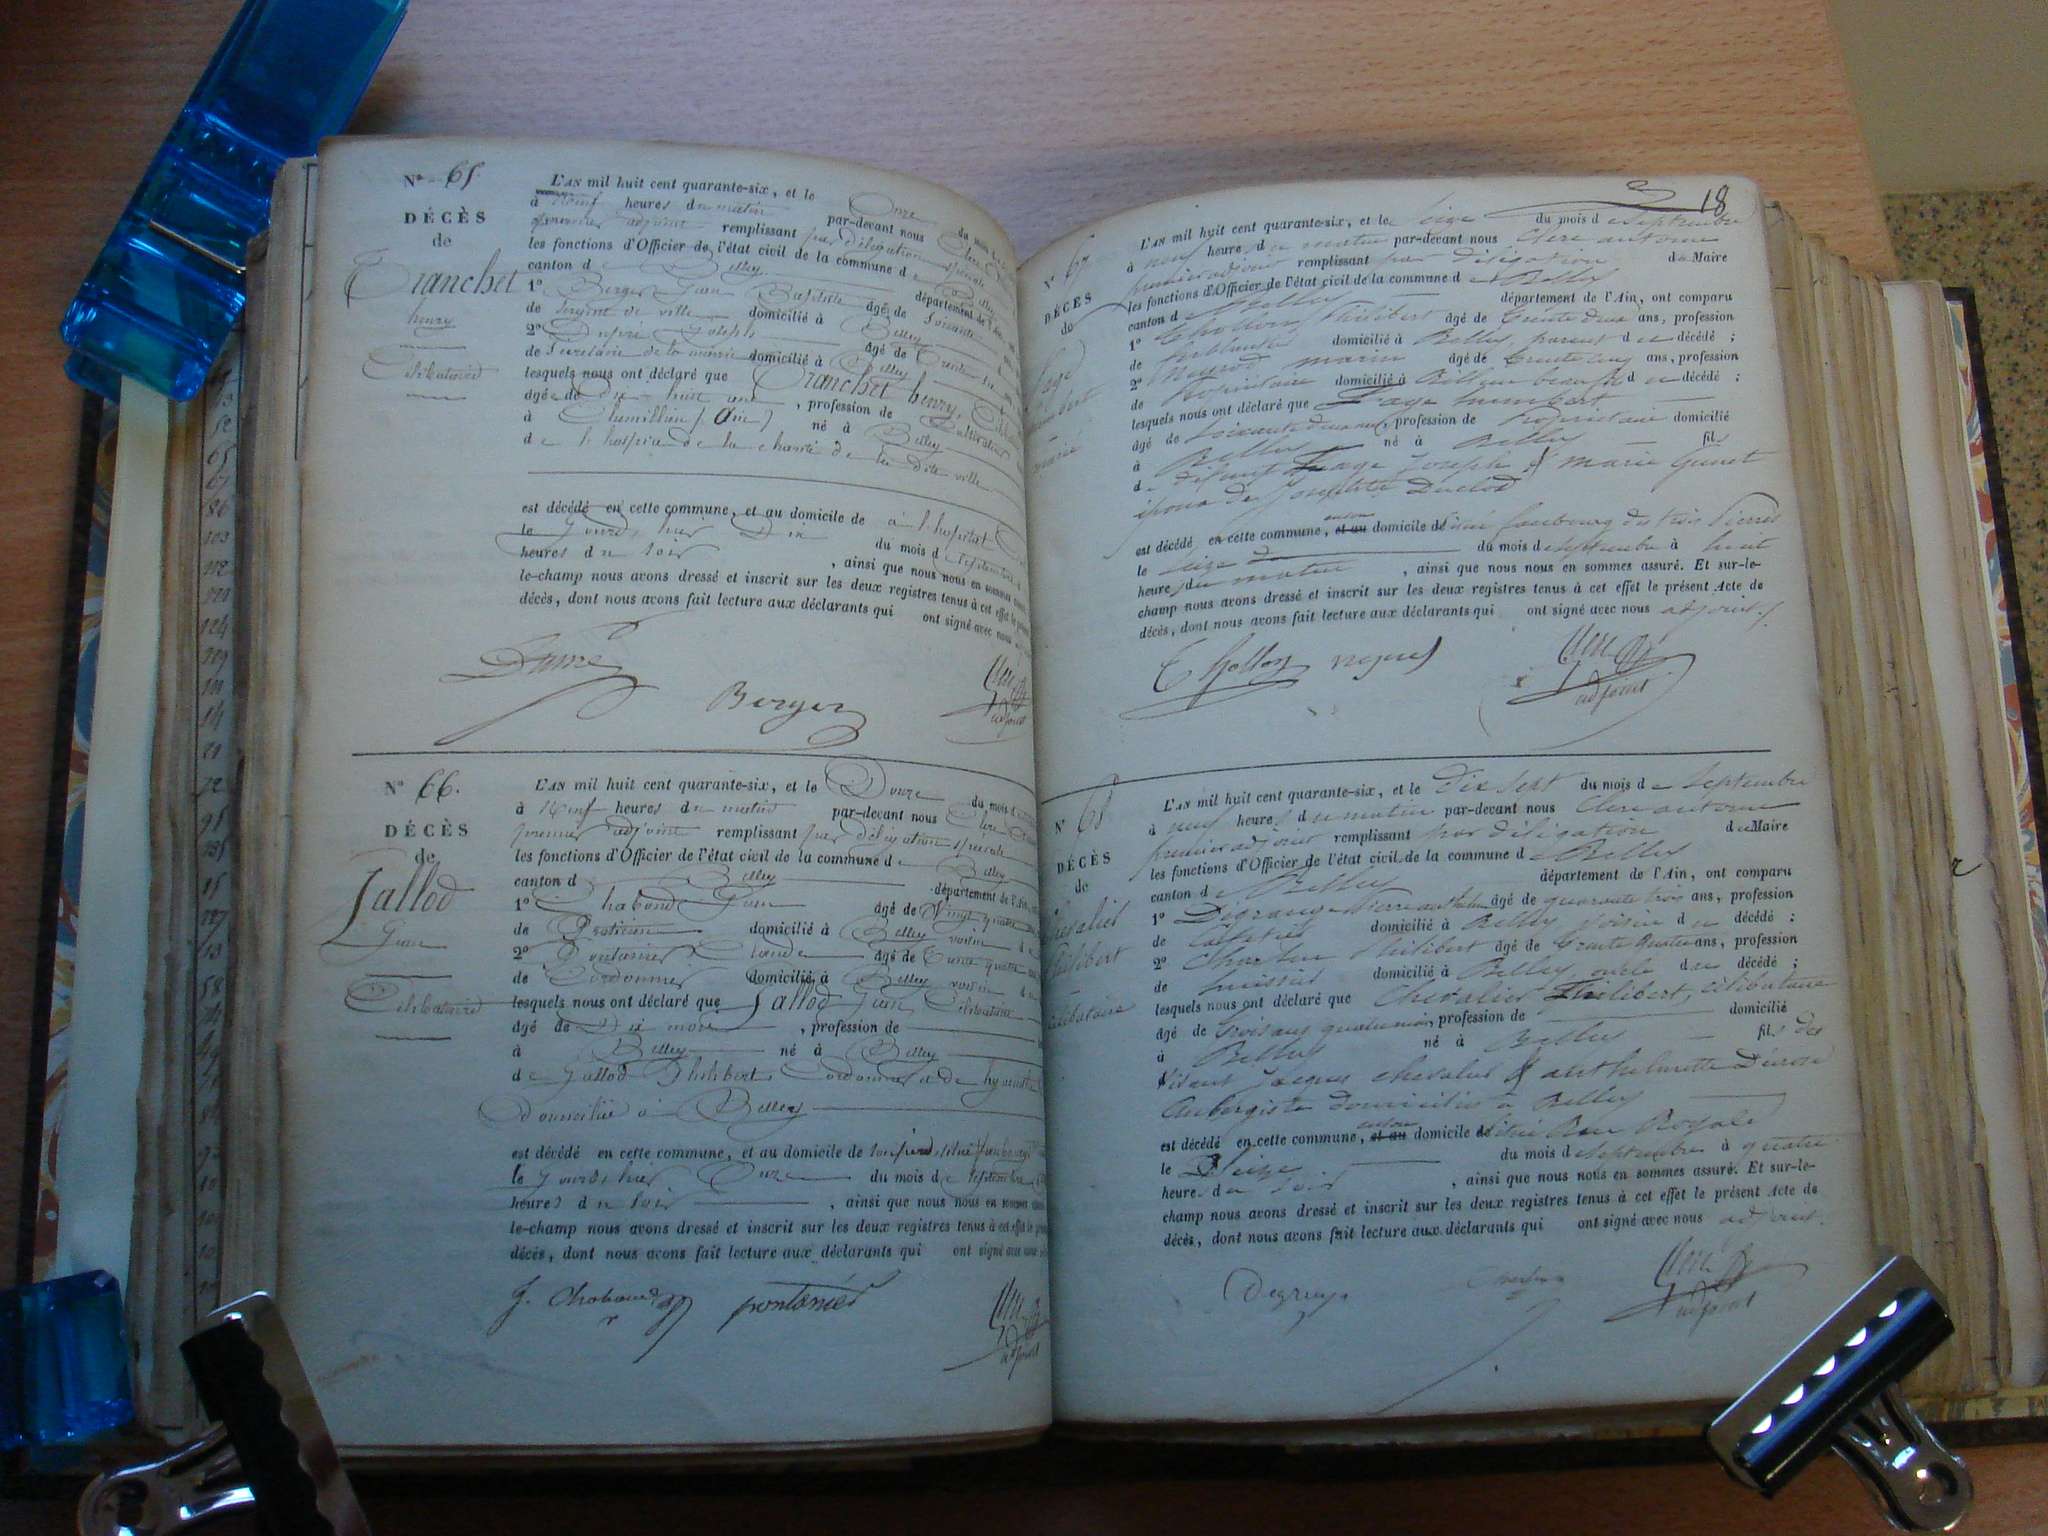 N° 65.
DÉCÈS
de
Tranchet
henry
Célibataire
L'AN mil huit cent quarante-six, et le Onze du mois
à Neuf heures du matin par-devant nous Clerc
premier adjoint remplissant par délégation spéciale
les fonctions d'Officier de l'état civil de la commune de Belley
canton de Belley département de l'Ain
1° Berger Jean Baptiste âgé de Soixante
de Sergent de ville domicilié à Belley
2° Dupré Joseph âgé de Trente
de Secrétaire de la mairie domicilié à Belley
lesquels nous ont déclaré que Tranchet henry, Célibataire
âgé de Dix-huit ans, profession de Cultivateur
à Chemillieu (Ain) né à Belley
de l'hospice de la charité de la dite ville
est décédé en cette commune, et au domicile de à l'hôpital
le jourd'hier Dix du mois de Septembre
heures du soir, ainsi que nous nous en sommes assuré
le-champ nous avons dressé et inscrit sur les deux registres tenus à cet effet le présent
décès, dont nous avons fait lecture aux déclarants qui ont signé avec nous
Berger
adjoint
N° 66.
DÉCÈS
de
Jallod
Jean
Célibataire
L'AN mil huit cent quarante-six, et le Douze du mois d
à Neuf heures du matin par-devant nous Clerc
premier adjoint remplissant par délégation spéciale
les fonctions d'Officier de l'état civil de la commune de Belley
canton d Belley département de l'Ain
1° Chaboud Jean âgé de Vingt quatre
de Praticien domicilié à Belley voisin d
2° Pontanier Claude âgé de Trente quatre
de Cordonnier domicilié à Belley voisin d
lesquels nous ont déclaré que Jallod Jean, Célibataire
âgé de Dix mois, profession de
à Belley né à Belley
de Jallod Philibert, Cordonnier et de
domicilié à Belley
est décédé en cette commune, et au domicile de son père, situé faubourg
le jourd'hier Onze du mois de Septembre
heures du soir, ainsi que nous nous en sommes
le-champ nous avons dressé et inscrit sur les deux registres tenus à cet effet le
décès, dont nous avons fait lecture aux déclarants qui ont signé avec nous
J. Chaboud pontanier
adjoint
18
N° 67
DÉCÈS
de
Lage
humbert
marié
L'AN mil huit cent quarante-six, et le seize du mois de Septembre
à neuf heures du matin par-devant nous Clerc antoine
premier adjoint remplissant par délégation du Maire
les fonctions d'Officier de l'état civil de la commune de Belley
canton de Belley département de l'Ain, ont comparu
1° Thollon Philibert âgé de trente deux ans, profession
de ferblantier domicilié à Belley, parent du décédé ;
2° marin âgé de trente cinq ans, profession
de Propriétaire domicilié à Belley beaufils du décédé ;
lesquels nous ont déclaré que Lage humbert
âgé de soixante deux ans, profession de Propriétaire domicilié
à Belley né à Belley fils
de défunt Lage Joseph & marie
époux de Josephte Duclod
est décédé en cette commune, en son domicile situé faubourg des trois Pierres
le seize du mois de septembre à huit
heures du matin, ainsi que nous nous en sommes assuré. Et sur-le-
champ nous avons dressé et inscrit sur les deux registres tenus à cet effet le présent Acte de
décès, dont nous avons fait lecture aux déclarants qui ont signé avec nous adjoint.
Thollon
adjoint
N° 68
DÉCÈS
de
Chevalier
Philibert
célibataire
L'AN mil huit cent quarante-six, et le Dix sept du mois de Septembre
à neuf heures du matin par-devant nous Clerc antoine
premier adjoint remplissant par délégation du Maire
les fonctions d'Officier de l'état civil de la commune de Belley
canton de Belley département de l'Ain, ont comparu
1° Dégrange âgé de quarante trois ans, profession
de Cafetier domicilié à Belley voisin du décédé ;
2° Philibert âgé de trente quatre ans, profession
de huissier domicilié à Belley, oncle du décédé ;
lesquels nous ont déclaré que Chevalier Philibert, célibataire
âgé de trois ans quatre mois, profession de domicilié
à Belley né à Belley fils des
vivant Jacques chevalier & anthelmette
Aubergiste domiciliés à Belley
est décédé en cette commune, en son domicile situé Rue Royale
le Seize du mois de septembre à quatre
heures du soir, ainsi que nous nous en sommes assuré. Et sur-le-
champ nous avons dressé et inscrit sur les deux registres tenus à cet effet le présent Acte de
décès, dont nous avons fait lecture aux déclarants qui ont signé avec nous adjoint.
adjoint